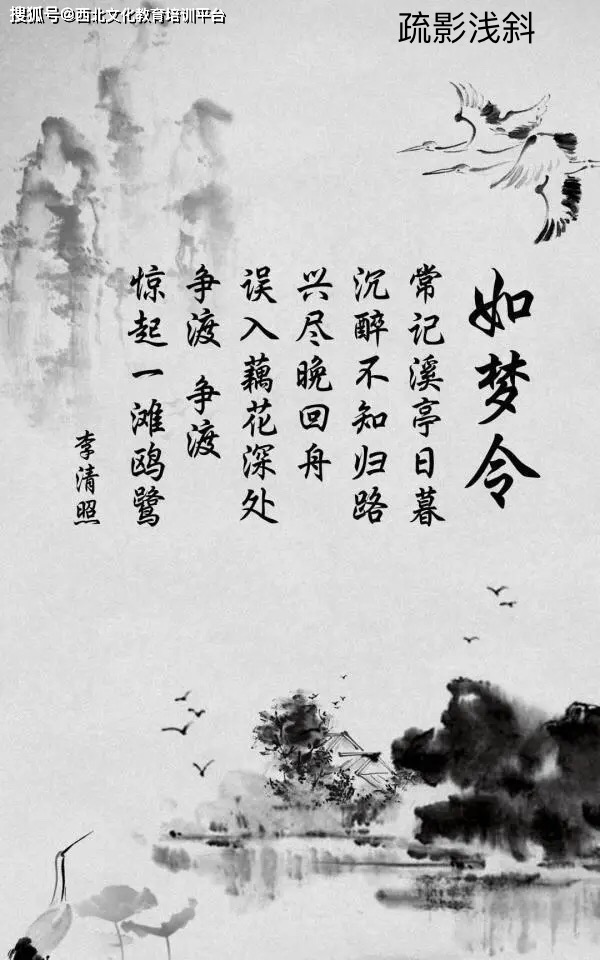 搜狐号@西北文化教育培训平台
疏影浅斜
如梦令
常记溪亭日暮
沉醉不知归路
兴尽晚回舟
误入藕花深处
争渡 争渡
惊起一滩鸥鹭
李清照